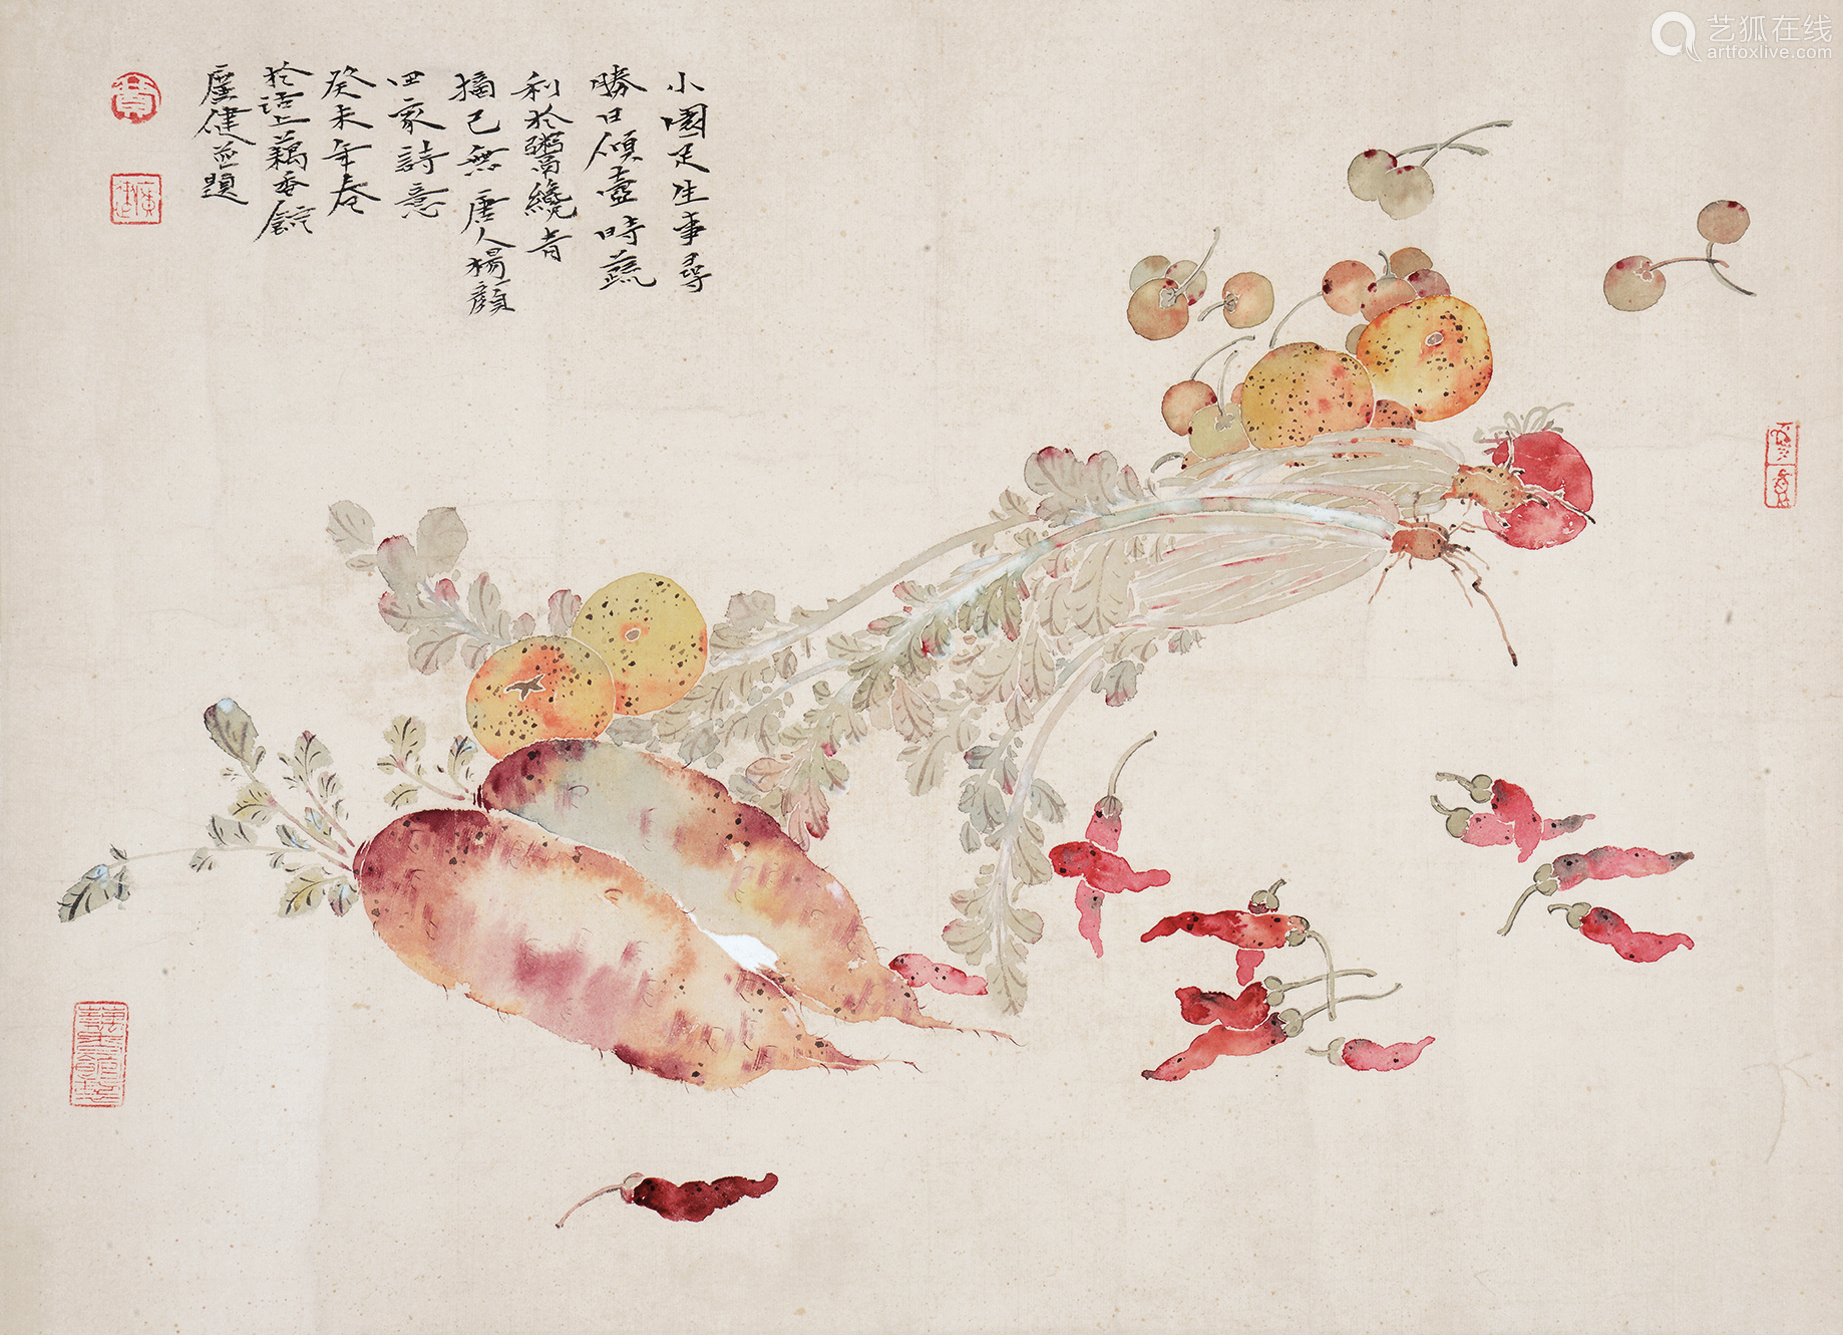 小園足生事尋
勝日傾壺時蔬
利於鬻纔青
摘已無唐人楊顏
田家詩意
癸未年春
於沽上藕香館
廣健並題
賈
廣健
艺狐在线
artfoxlive.com